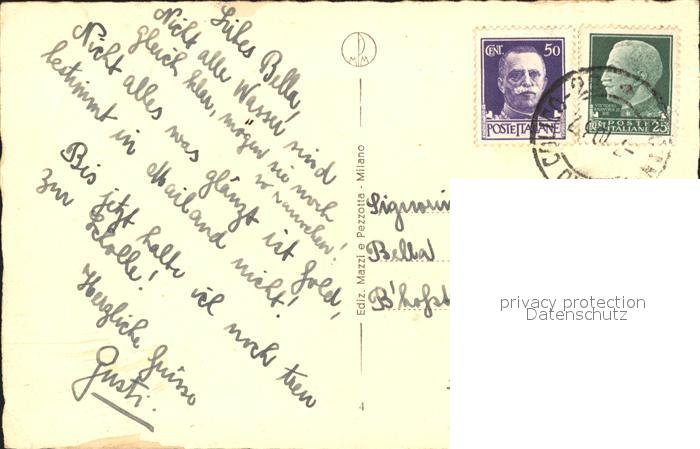 Liebes Bella!
Nicht alle Wasser sind
gleich klar, mögen sie noch
so rauschen!
Nicht alles was glänzt ist Gold,
bestimmt in Mailand nicht!
Bis jetzt halte ich noch treu
zur Scholle!
Herzliche Grüsse
Gusti.
Ediz. Mazzi e Pezzotta - Milano
4
CENT. 50
POSTE ITALIANE
POSTE
ITALIANE 25
Signorin
Bella
B'hofst
privacy protection
Datenschutz